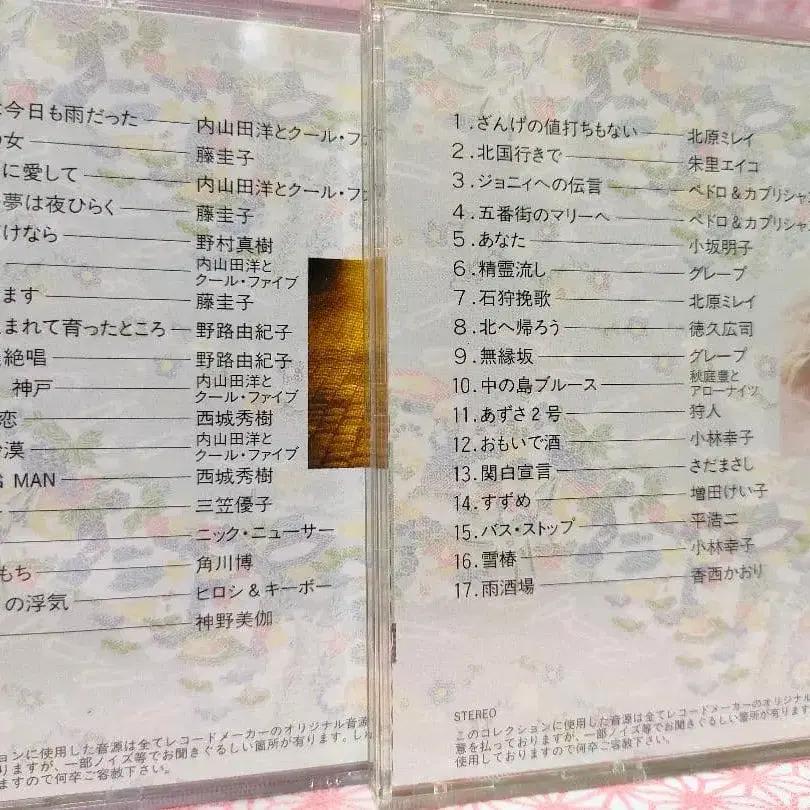 今日も雨だった 内山田洋とクール・フ
女 藤圭子
に愛して 内山田洋とクール・フ
夢は夜ひらく 藤圭子
けなら 野村真樹
内山田洋と
クール・ファイブ
ます 藤圭子
まれて育ったところ 野路由紀子
絶唱 野路由紀子
神戸 内山田洋と
クール・ファイブ
恋 西城秀樹
漠 内山田洋と
クール・ファイブ
MAN 西城秀樹
三笠優子
ニック・ニューサー
もち 角川博
の浮気 ヒロシ&キーボー
神野美伽
ションに使用した音源は全てレコードメーカーのオリジナル音源
りますが、一部ノイズ等でお聞きぐるしい箇所が有ります。しゅ
ますので何卒ご容赦下さい。
1.ざんげの値打ちもない 北原ミレイ
2.北国行きで 朱里エイコ
3.ジョニィへの伝言 ペドロ&カプリシャス
4.五番街のマリーへ ペドロ&カプリシャス
5.あなた 小坂明子
6.精霊流し グレープ
7.石狩挽歌 北原ミレイ
8.北へ帰ろう 徳久広司
9.無縁坂 グレープ
10.中の島ブルース 秋庭豊と
アローナイツ
11.あずさ2号 狩人
12.おもいで酒 小林幸子
13.関白宣言 さだまさし
14.すずめ 増田けい子
15.バス・ストップ 平浩二
16.雪椿 小林幸子
17.雨酒場 香西かおり
STEREO
このコレクションに使用した音源は全てレコードメーカーのオリジナル
意を払っておりますが、一部ノイズ等でお聞きぐるしい箇所が有ります
使用しておりますので何卒ご容赦下さい。